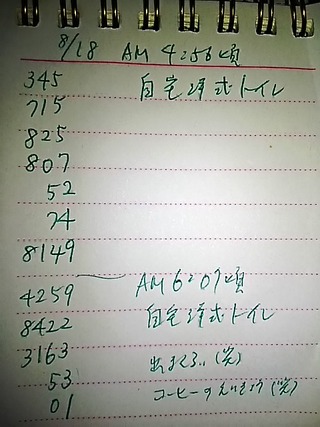 8/18 AM 4:56頃
345 自宅洋式トイレ
715
825
807
52
74
8149
AM 6:07頃
4259
8422 自宅洋式トイレ
3163 出まくる..(笑)
53
01 コーヒーの (笑)